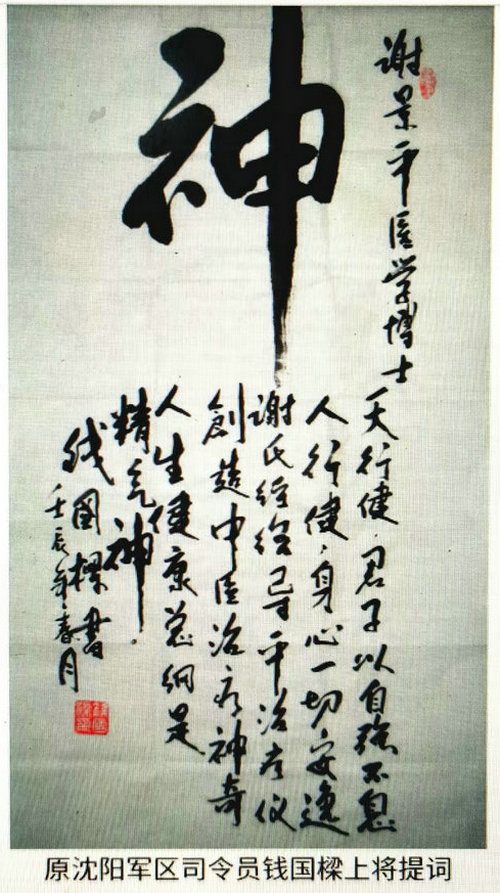 谢景平医学博士
神
天行健,君子以自强不息
人行健,身心一切安逸
谢氏经络导平治疗仪
創造中医治疗神奇
人生健康总纲是
精气神
钱國樑書
壬辰年春月
原沈阳军区司令员钱国樑上将提词